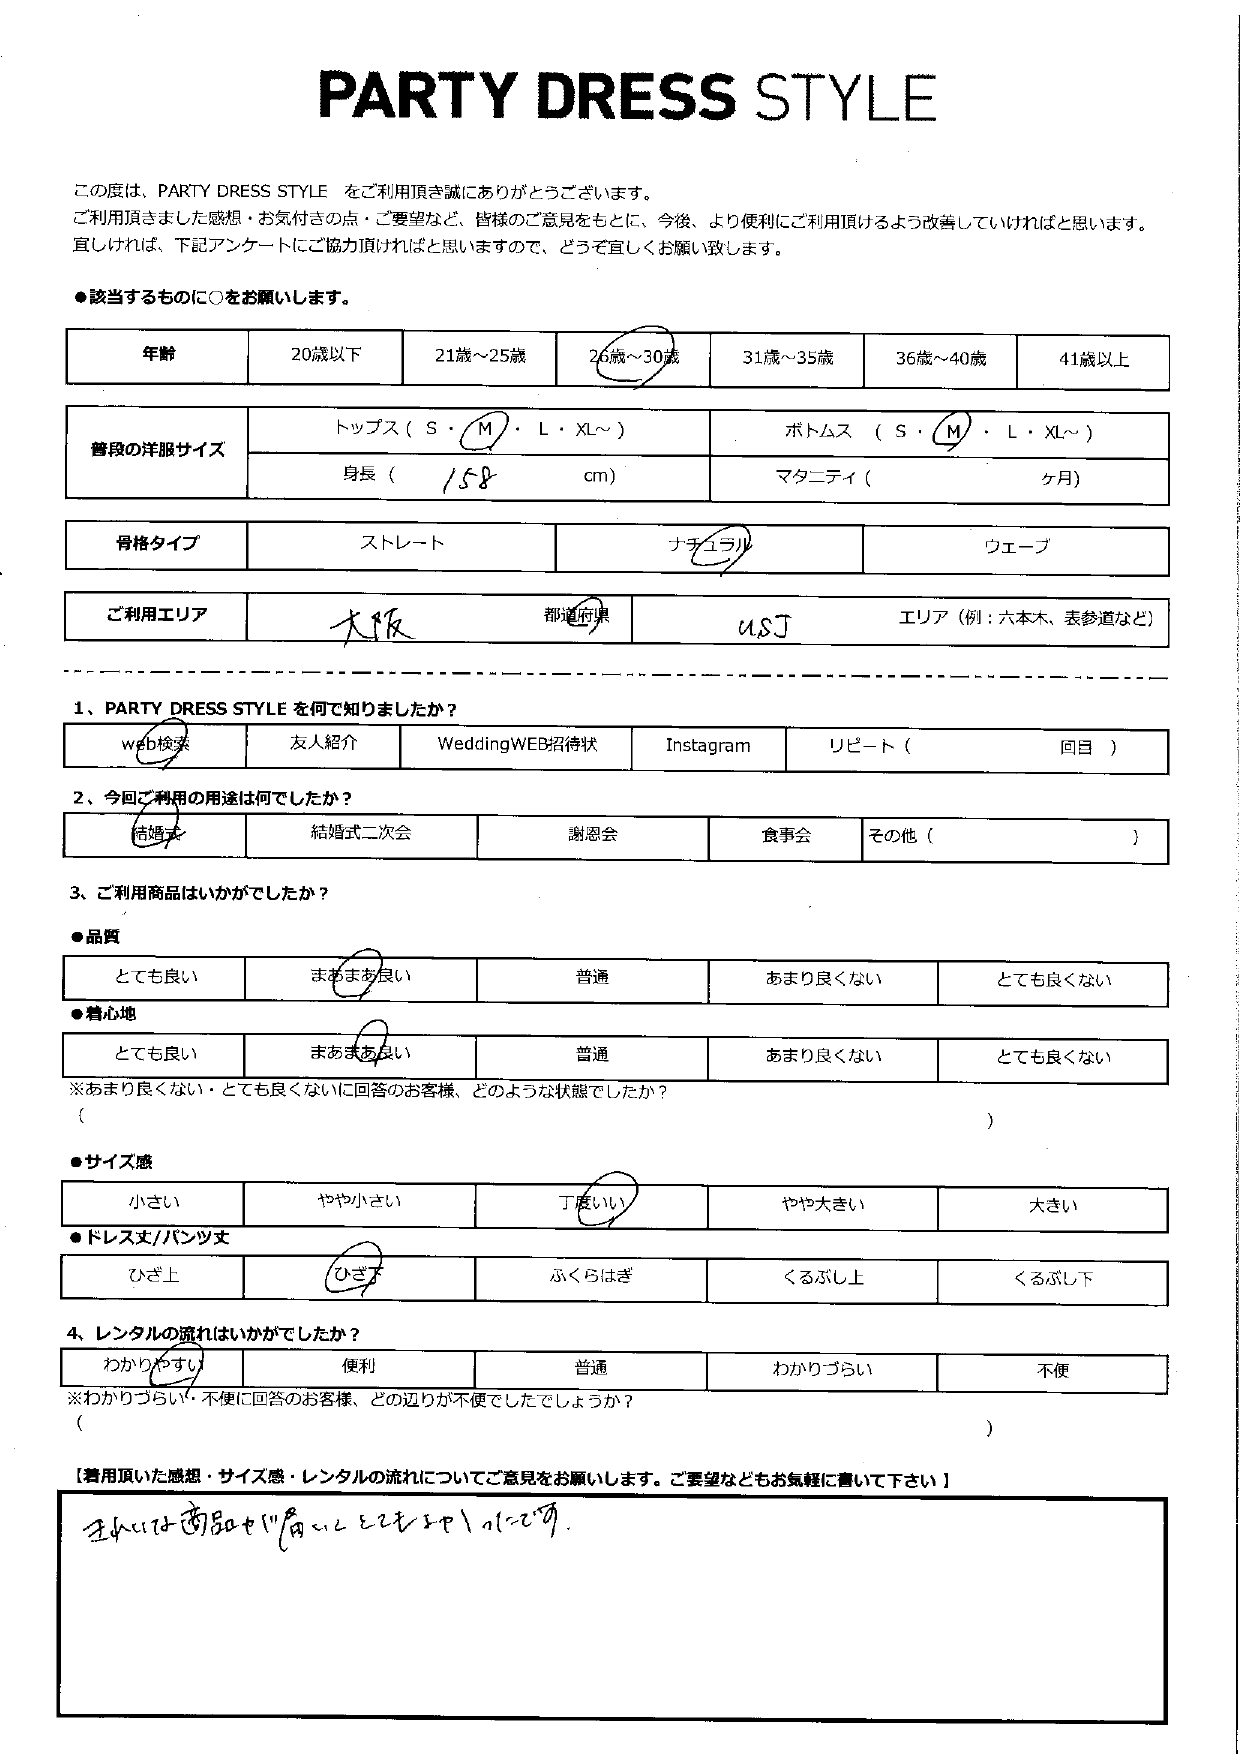 PARTY DRESS STYLE
この度は、PARTY DRESS STYLE をご利用頂き誠にありがとうございます。
ご利用頂きました感想・お気付きの点・ご要望など、皆様のご意見をもとに、今後、より便利にご利用頂けるよう改善していければと思います。
宜しければ、下記アンケートにご協力頂ければと思いますので、どうぞ宜しくお願い致します。
●該当するものに○をお願いします。
年齢 20歳以下 21歳～25歳 26歳～30歳 31歳～35歳 36歳～40歳 41歳以上
普段の洋服サイズ トップス ( S ・ M ・ L ・ XL～ ) ボトムス ( S ・ M ・ L ・ XL～ )
身長 ( 158 cm) マタニティ ( ヶ月)
骨格タイプ ストレート ナチュラル ウェーブ
ご利用エリア 大阪 都道府県 USJ エリア（例：六本木、表参道など）
1、PARTY DRESS STYLE を何で知りましたか？
web検索 友人紹介 WeddingWEB招待状 Instagram リピート ( 回目 )
2、今回ご利用の用途は何でしたか？
結婚式 結婚式二次会 謝恩会 食事会 その他 ( )
3、ご利用商品はいかがでしたか？
●品質
とても良い まあまあ良い 普通 あまり良くない とても良くない
●着心地
とても良い まあまあ良い 普通 あまり良くない とても良くない
※あまり良くない・とても良くないに回答のお客様、どのような状態でしたか？
( )
●サイズ感
小さい やや小さい 丁度いい やや大きい 大きい
●ドレス丈/パンツ丈
ひざ上 ひざ下 ふくらはぎ くるぶし上 くるぶし下
4、レンタルの流れはいかがでしたか？
わかりやすい 便利 普通 わかりづらい 不便
※わかりづらい・不便に回答のお客様、どの辺りが不便でしたでしょうか？
( )
【着用頂いた感想・サイズ感・レンタルの流れについてご意見をお願いします。ご要望などもお気軽に書いて下さい 】
きれいな商品が届いてとてもよかったです.